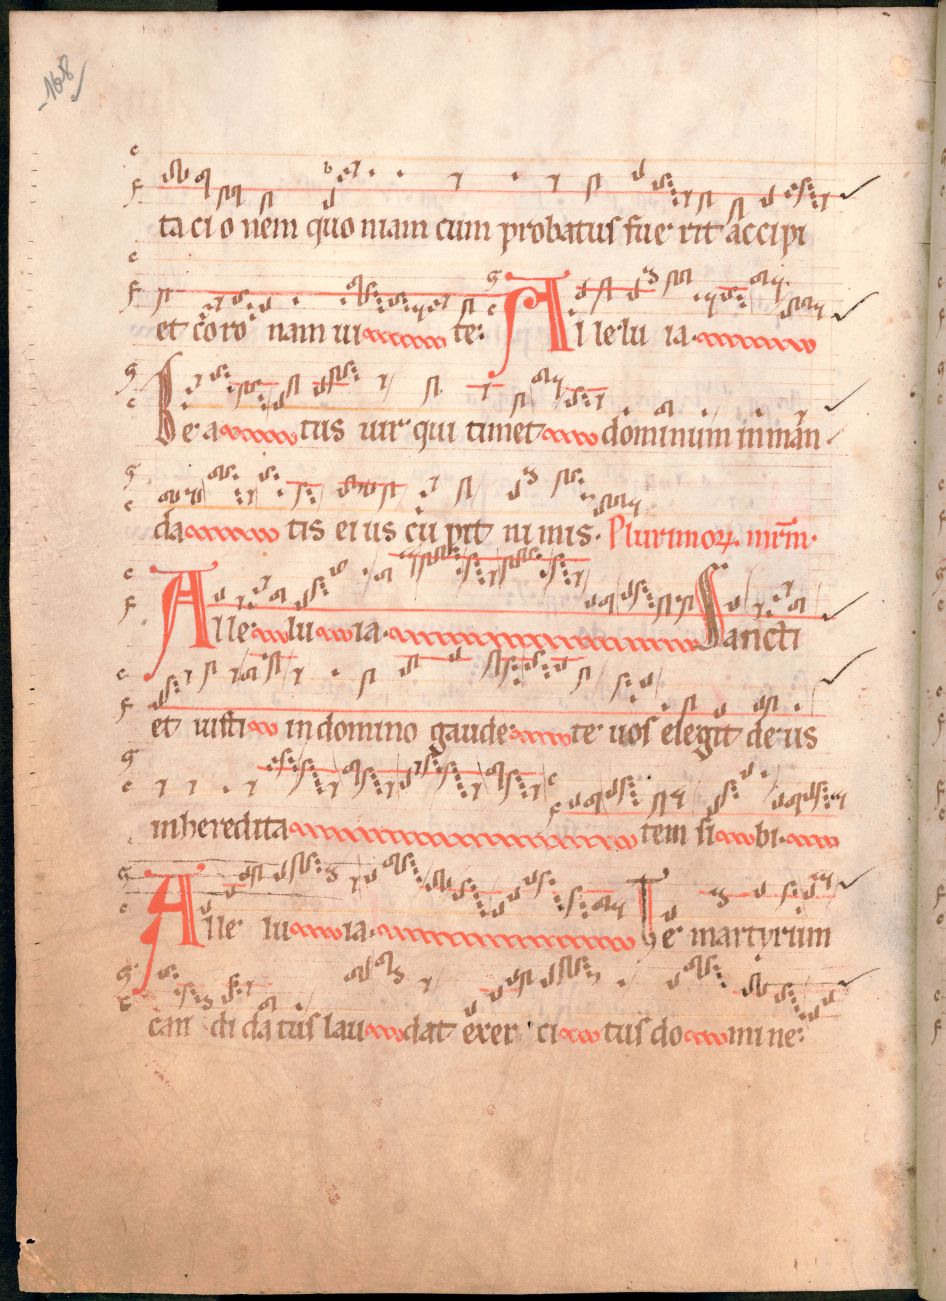 168
ta ci o nem quo niam cum probatus fue rit accipi
et co ro nam ui te: Al le lu ia.
Be a tus uir qui timet dominum in man
da tis ei us cu pit ni mis. Plurimoꝝ. mr̄m.
Alle lu ia. Sancti
et iusti in domino gaude te uos elegit deus
in heredita tem si bi.
Alle lu ia. Te martyrum
can di da tus lau dat exer ci tus do mi ne: